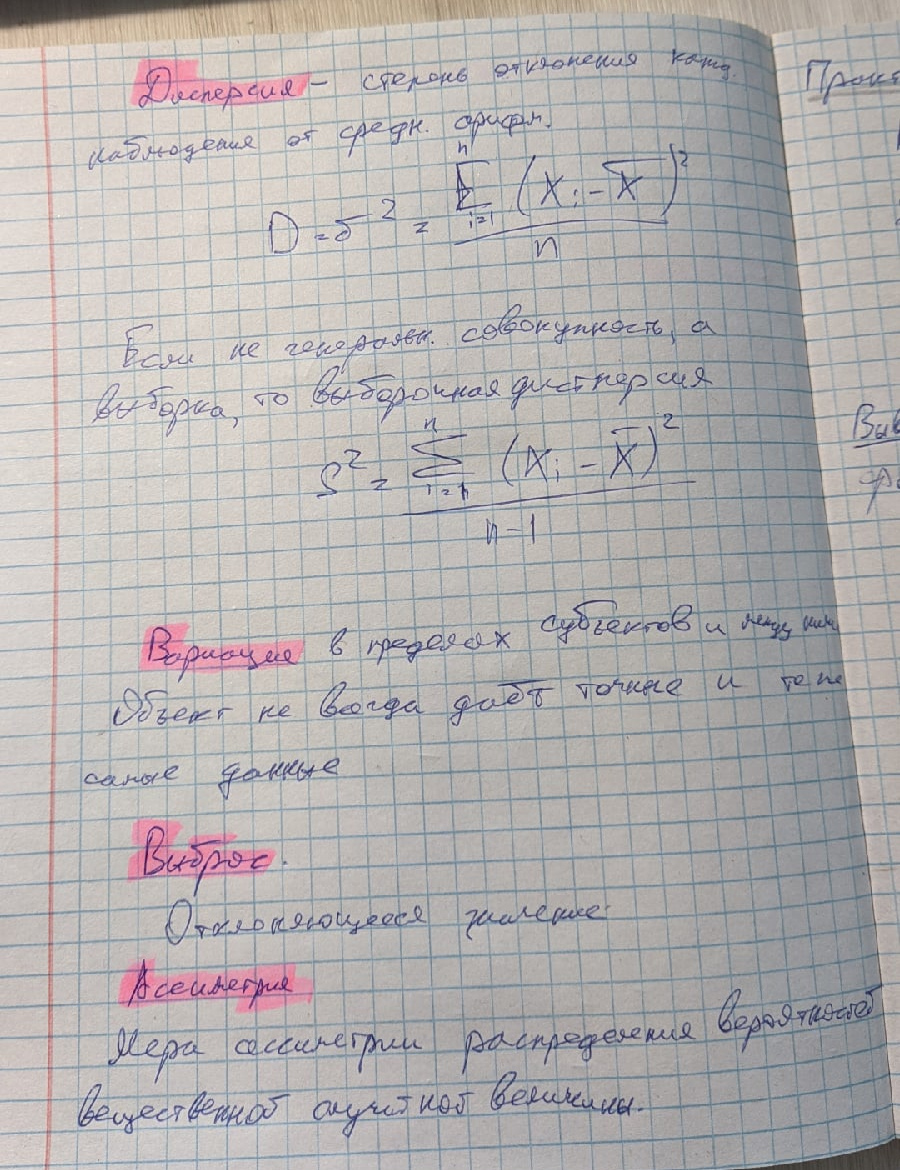 Дисперсия – степень отклонения кажд.
наблюдения от средн. арифм.
D = σ² = \frac{\sum_{i=1}^{n} (X_i - \overline{X})^2}{n}
Если не генеральн. совокупность, а
выборка, то выборочная дисперсия
S² = \frac{\sum_{i=1}^{n} (X_i - \overline{X})^2}{n-1}
Вариация в пределах субъектов и между ними
Объект не всегда даёт точные и те же
самые данные
Выброс.
Отклоняющееся значение
Ассиметрия
Мера ассиметрии распределения вероятностей
вещественной случайной величины.